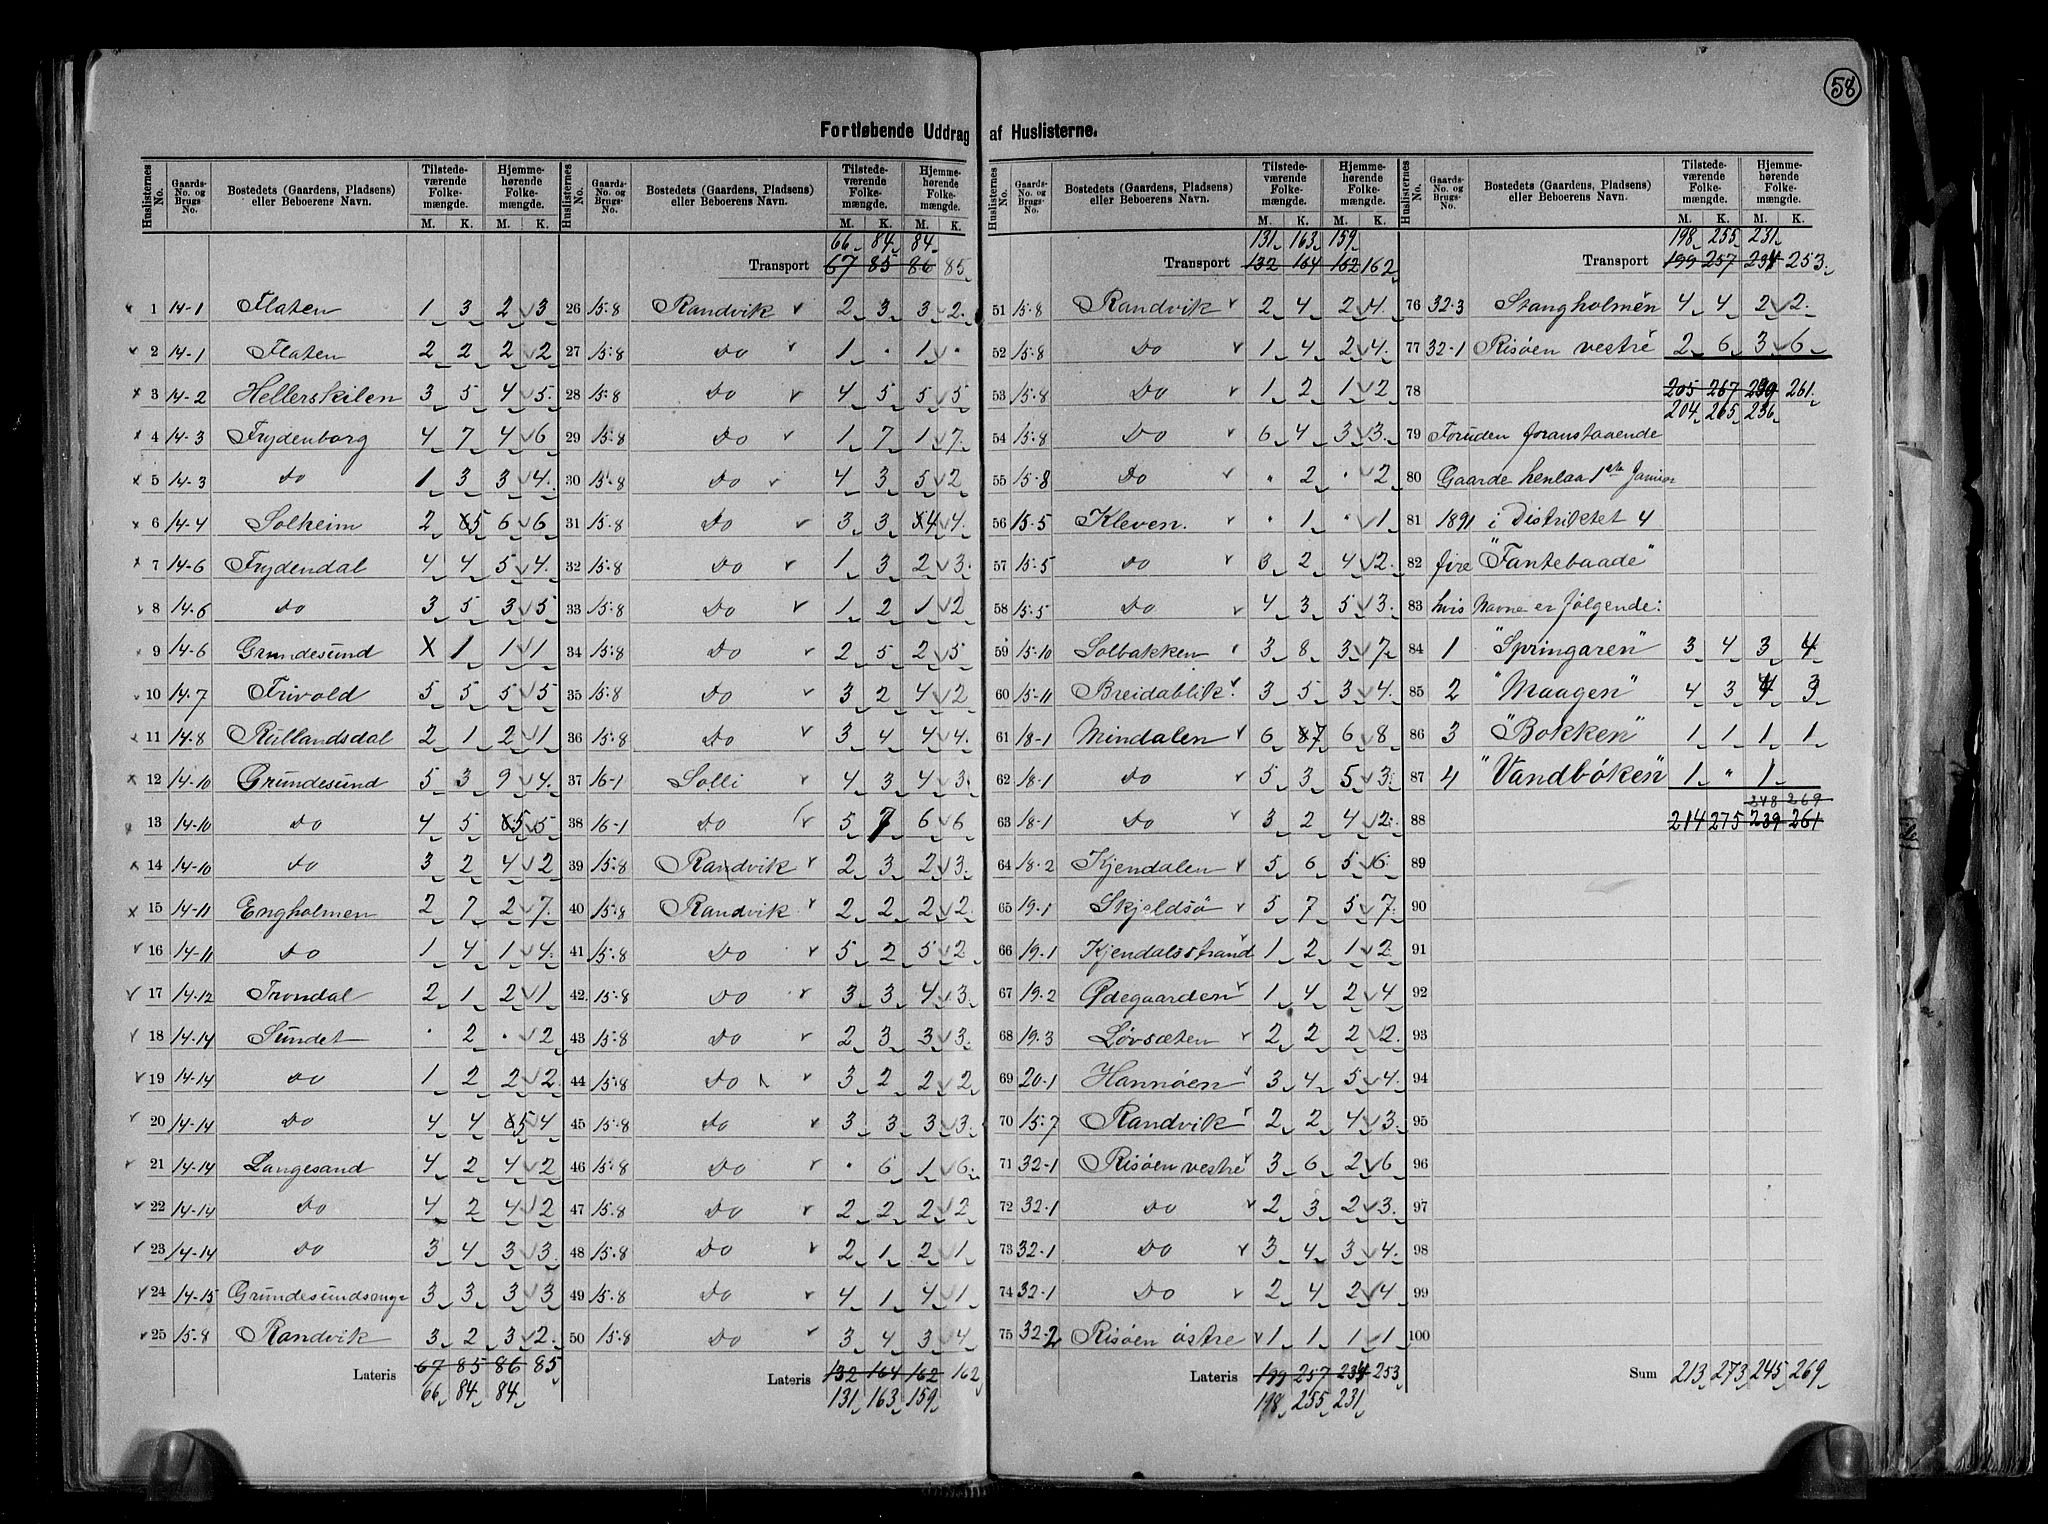 58
Fortløbende Uddrag af Huslisterne.
Huslisternes No. | Gaards-No. og Brugs-No. | Bostedets (Gaardens, Pladsens) eller Beboerens Navn. | Tilstedeværende Folkemængde. M. K. | Hjemmehørende Folkemængde. M. K.
1 14-1 Flaten 1 3 2 3
2 14-1 Flaten 2 2 2 2
3 14-2 Hellerskilen 3 5 4 5
4 14-3 Frydenborg 4 7 4 6
5 14-3 Do 1 3 3 4
6 14-4 Solheim 2 5 6 6
7 14-6 Frydendal 4 4 5 4
8 14-6 Do 3 5 3 5
9 14-6 Grundesund X 1 1 1
10 14-7 Frivold 5 5 5 5
11 14-8 Rullandsdal 2 1 2 1
12 14-10 Grundesund 5 3 9 4
13 14-10 Do 4 5 5 5
14 14-10 Do 3 2 4 2
15 14-11 Engholmen 2 7 2 7
16 14-11 Do 1 4 1 4
17 14-12 Trondal 2 1 2 1
18 14-14 Sundet . 2 . 2
19 14-14 Do 1 2 2 2
20 14-14 Do 4 4 5 4
21 14-14 Langesand 4 2 4 2
22 14-14 Do 4 2 4 2
23 14-14 Do 3 4 3 3
24 14-15 Grundesundsenge 3 3 3 3
25 15-8 Randvik 3 2 3 2
Lateris 67 85 86 85
66 84 84
Huslisternes No. | Gaards-No. og Brugs-No. | Bostedets (Gaardens, Pladsens) eller Beboerens Navn. | Tilstedeværende Folkemængde. M. K. | Hjemmehørende Folkemængde. M. K.
66 84 84
Transport 67 85 86 85
26 15-8 Randvik 2 3 3 2
27 15-8 Do 1 . 1 .
28 15-8 Do 4 5 5 5
29 15-8 Do 1 7 1 7
30 15-8 Do 4 3 5 2
31 15-8 Do 3 3 4 4
32 15-8 Do 1 3 2 3
33 15-8 Do 1 2 1 2
34 15-8 Do 2 5 2 5
35 15-8 Do 3 2 4 2
36 15-8 Do 3 4 4 4
37 16-1 Solli 4 3 4 3
38 16-1 Do 5 7 6 6
39 15-8 Randvik 2 3 2 3
40 15-8 Randvik 2 2 2 2
41 15-8 Do 5 2 5 2
42 15-8 Do 3 3 4 3
43 15-8 Do 2 3 3 3
44 15-8 Do 3 2 2 2
45 15-8 Do 3 3 3 3
46 15-8 Do . 6 1 6
47 15-8 Do 2 2 2 2
48 15-8 Do 2 1 2 1
49 15-8 Do 4 1 4 1
50 15-8 Do 3 4 3 4
Lateris 132 164 162 162
131 163 159
Huslisternes No. | Gaards-No. og Brugs-No. | Bostedets (Gaardens, Pladsens) eller Beboerens Navn. | Tilstedeværende Folkemængde. M. K. | Hjemmehørende Folkemængde. M. K.
131 163 159
Transport 132 164 162 162
51 15-8 Randvik 2 4 2 4
52 15-8 Do 1 4 2 4
53 15-8 Do 1 2 1 2
54 15-8 Do 6 4 3 3
55 15-8 Do " 2 . 2
56 15-5 Kleven . 1 . 1
57 15-5 Do 3 2 4 2
58 15-5 Do 4 3 5 3
59 15-10 Solbakken 3 8 3 7
60 15-11 Breidablik 3 5 3 4
61 18-1 Mindalen 6 7 6 8
62 18-1 Do 5 3 5 3
63 18-1 Do 3 2 4 2
64 18-2 Kjendalen 5 6 5 6
65 19-1 Skjeldsø 5 7 5 7
66 19-1 Kjendalsstrand 1 2 1 2
67 19-2 Ødegaarden 1 4 2 4
68 19-3 Løvsæten 2 2 2 2
69 20-1 Hannøen 3 4 5 4
70 15-7 Randvik 2 2 4 3
71 32-1 Risøen vestre 3 6 2 6
72 32-1 Do 2 3 2 3
73 32-1 Do 3 4 3 4
74 32-1 Do 2 4 2 4
75 32-2 Risøen østre 1 1 1 1
Lateris 199 257 234 253
198 255 231
Huslisternes No. | Gaards-No. og Brugs-No. | Bostedets (Gaardens, Pladsens) eller Beboerens Navn. | Tilstedeværende Folkemængde. M. K. | Hjemmehørende Folkemængde. M. K.
198 255 231
Transport 199 257 234 253
76 32-3 Stangholmen 4 4 2 2
77 32-1 Risøen vestre 2 6 3 6
78 205 267 239 261
204 265 236
79 Foruden foranstaaende
80 Gaarde henlaa 1ste Januar
81 1891 i Distriktet 4
82 fire "Fantebaade"
83 hvis Navne er følgende:
84 1 "Springaren" 3 4 3 4
85 2 "Maagen" 4 3 4 3
86 3 "Bokken" 1 1 1 1
87 4 "Vandbøken" 1 " 1
248 269
88 214 275 239 261
89
90
91
92
93
94
95
96
97
98
99
100
Sum 213 273 245 269